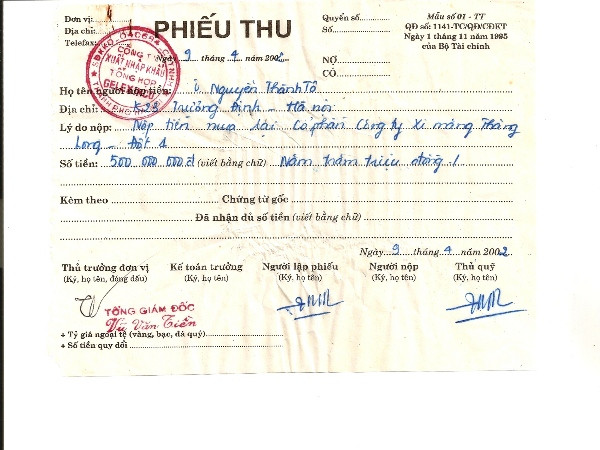 Đơn vị:
Địa chỉ:
Telefax:
PHIẾU THU
Quyển số:
Số
Mẫu số 01 - TT
QĐ số: 1141-TC/QĐ/CĐKT
Ngày 1 tháng 11 năm 1995
của Bộ Tài chính
Ngày 9 tháng 4 năm 2002
NỢ
CÓ
CÔNG TY
XUẤT NHẬP KHẨU
TỔNG HỢP
GELEXIMCO
Họ tên người nộp tiền: Ô. Nguyễn Thành Tô
Địa chỉ: K23 Trương Định - Hà nội
Lý do nộp: Nộp tiền mua lại Cổ phần Công ty Xi măng Thăng
Long - Đợt 1
Số tiền: 500 000 000đ (viết bằng chữ) Năm trăm triệu đồng
Kèm theo Chứng từ gốc
Đã nhận đủ số tiền (viết bằng chữ)
Ngày 9 tháng 4 năm 2002
Thủ trưởng đơn vị Kế toán trưởng Người lập phiếu Người nộp Thủ quỹ
(Ký, họ tên, đóng dấu) (Ký, họ tên) (Ký, họ tên) (Ký, họ tên) (Ký, họ tên)
TỔNG GIÁM ĐỐC
Vũ Văn Tiền
+ Tỷ giá ngoại tệ (vàng, bạc, đá quý)
+ Số tiền quy đổi